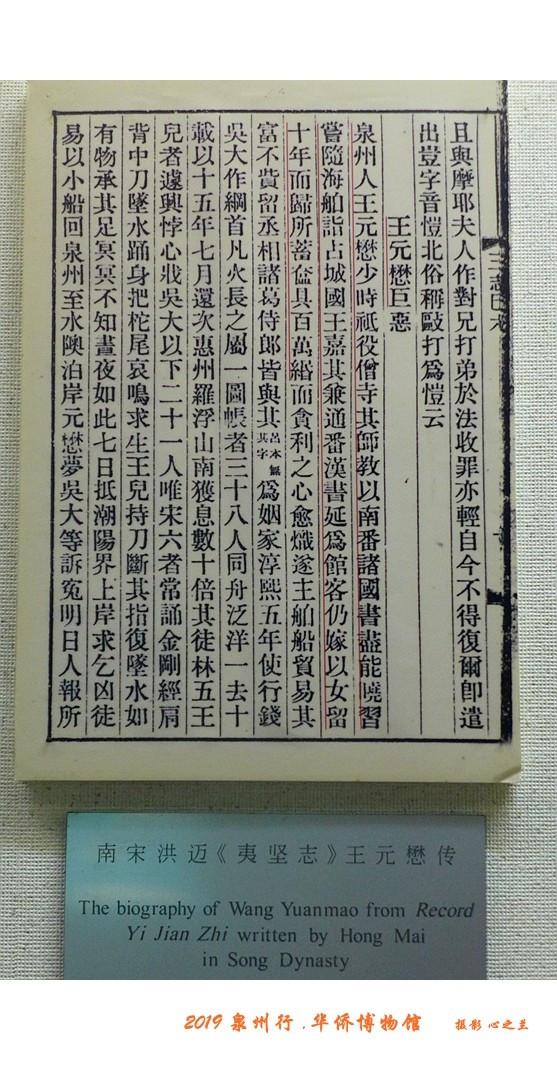 且與摩耶夫人作對兄打弟於法收罪亦輕自今不得復爾卽遣
出豈字音愷北俗稱毆打爲愷云
王元懋巨惡
泉州人王元懋少時祗役僧寺其師教以南番諸國書盡能曉習
嘗隨海舶詣占城國王嘉其兼通番漢書延爲館客仍嫁以女留
十年而歸所蓄奩具百萬緡而貪利之心愈熾遂主舶船貿易其
富不貲留丞相諸葛侍郎皆與其呂本無其字爲姻家淳熙五年使行錢
吳大作綱首凡火長之屬一圖帳者三十八人同舟泛洋一去十
載以十五年七月還次惠州羅浮山南獲息數十倍其徒林五王
兒者遽興悖心戕吳大以下二十一人唯宋六者常誦金剛經肩
背中刀墜水踊身把柁尾哀鳴求生王兒持刀斷其指復墜水如
有物承其足冥冥不知晝夜如此七日抵潮陽界上岸求乞凶徒
易以小船回泉州至水隩泊岸元懋夢吳大等訴冤明日人報所
南宋洪迈《夷坚志》王元懋传
The biography of Wang Yuanmao from Record
Yi Jian Zhi written by Hong Mai
in Song Dynasty
2019 泉州行 . 华侨博物馆 摄影 心之兰